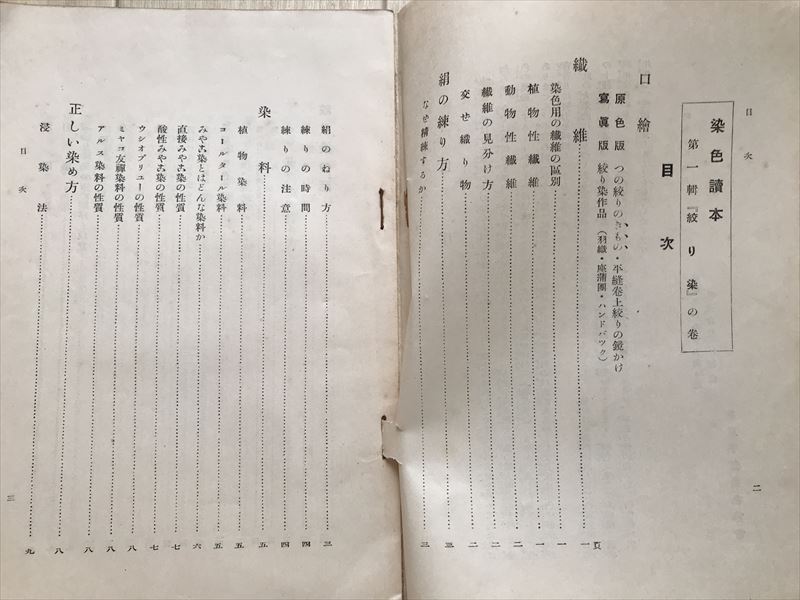 目次
染色讀本
第一輯『絞り染』の卷
目次
口繪
原色版 つの絞りのきもの・平縫卷上絞りの鏡かけ
寫眞版 絞り染作品(羽織・座蒲團・ハンドバック)
纖維……一頁
染色用の纖維の區別……一
植物性纖維……一
動物性纖維……二
纖維の見分け方……二
交ぜ織り物……二
絹の練り方……三
なぜ精練するか……三
二
絹のねり方……三
練りの時間……四
練りの注意……四
染料……五
植物染料……五
コールタール染料……五
みや古染とはどんな染料か……六
直接みや古染の性質……七
酸性みや古染の性質……七
ウシオブリユーの性質……八
ミヤコ友禪染料の性質……八
アルス染料の性質……八
正しい染め方……八
浸染法……九
目次
三